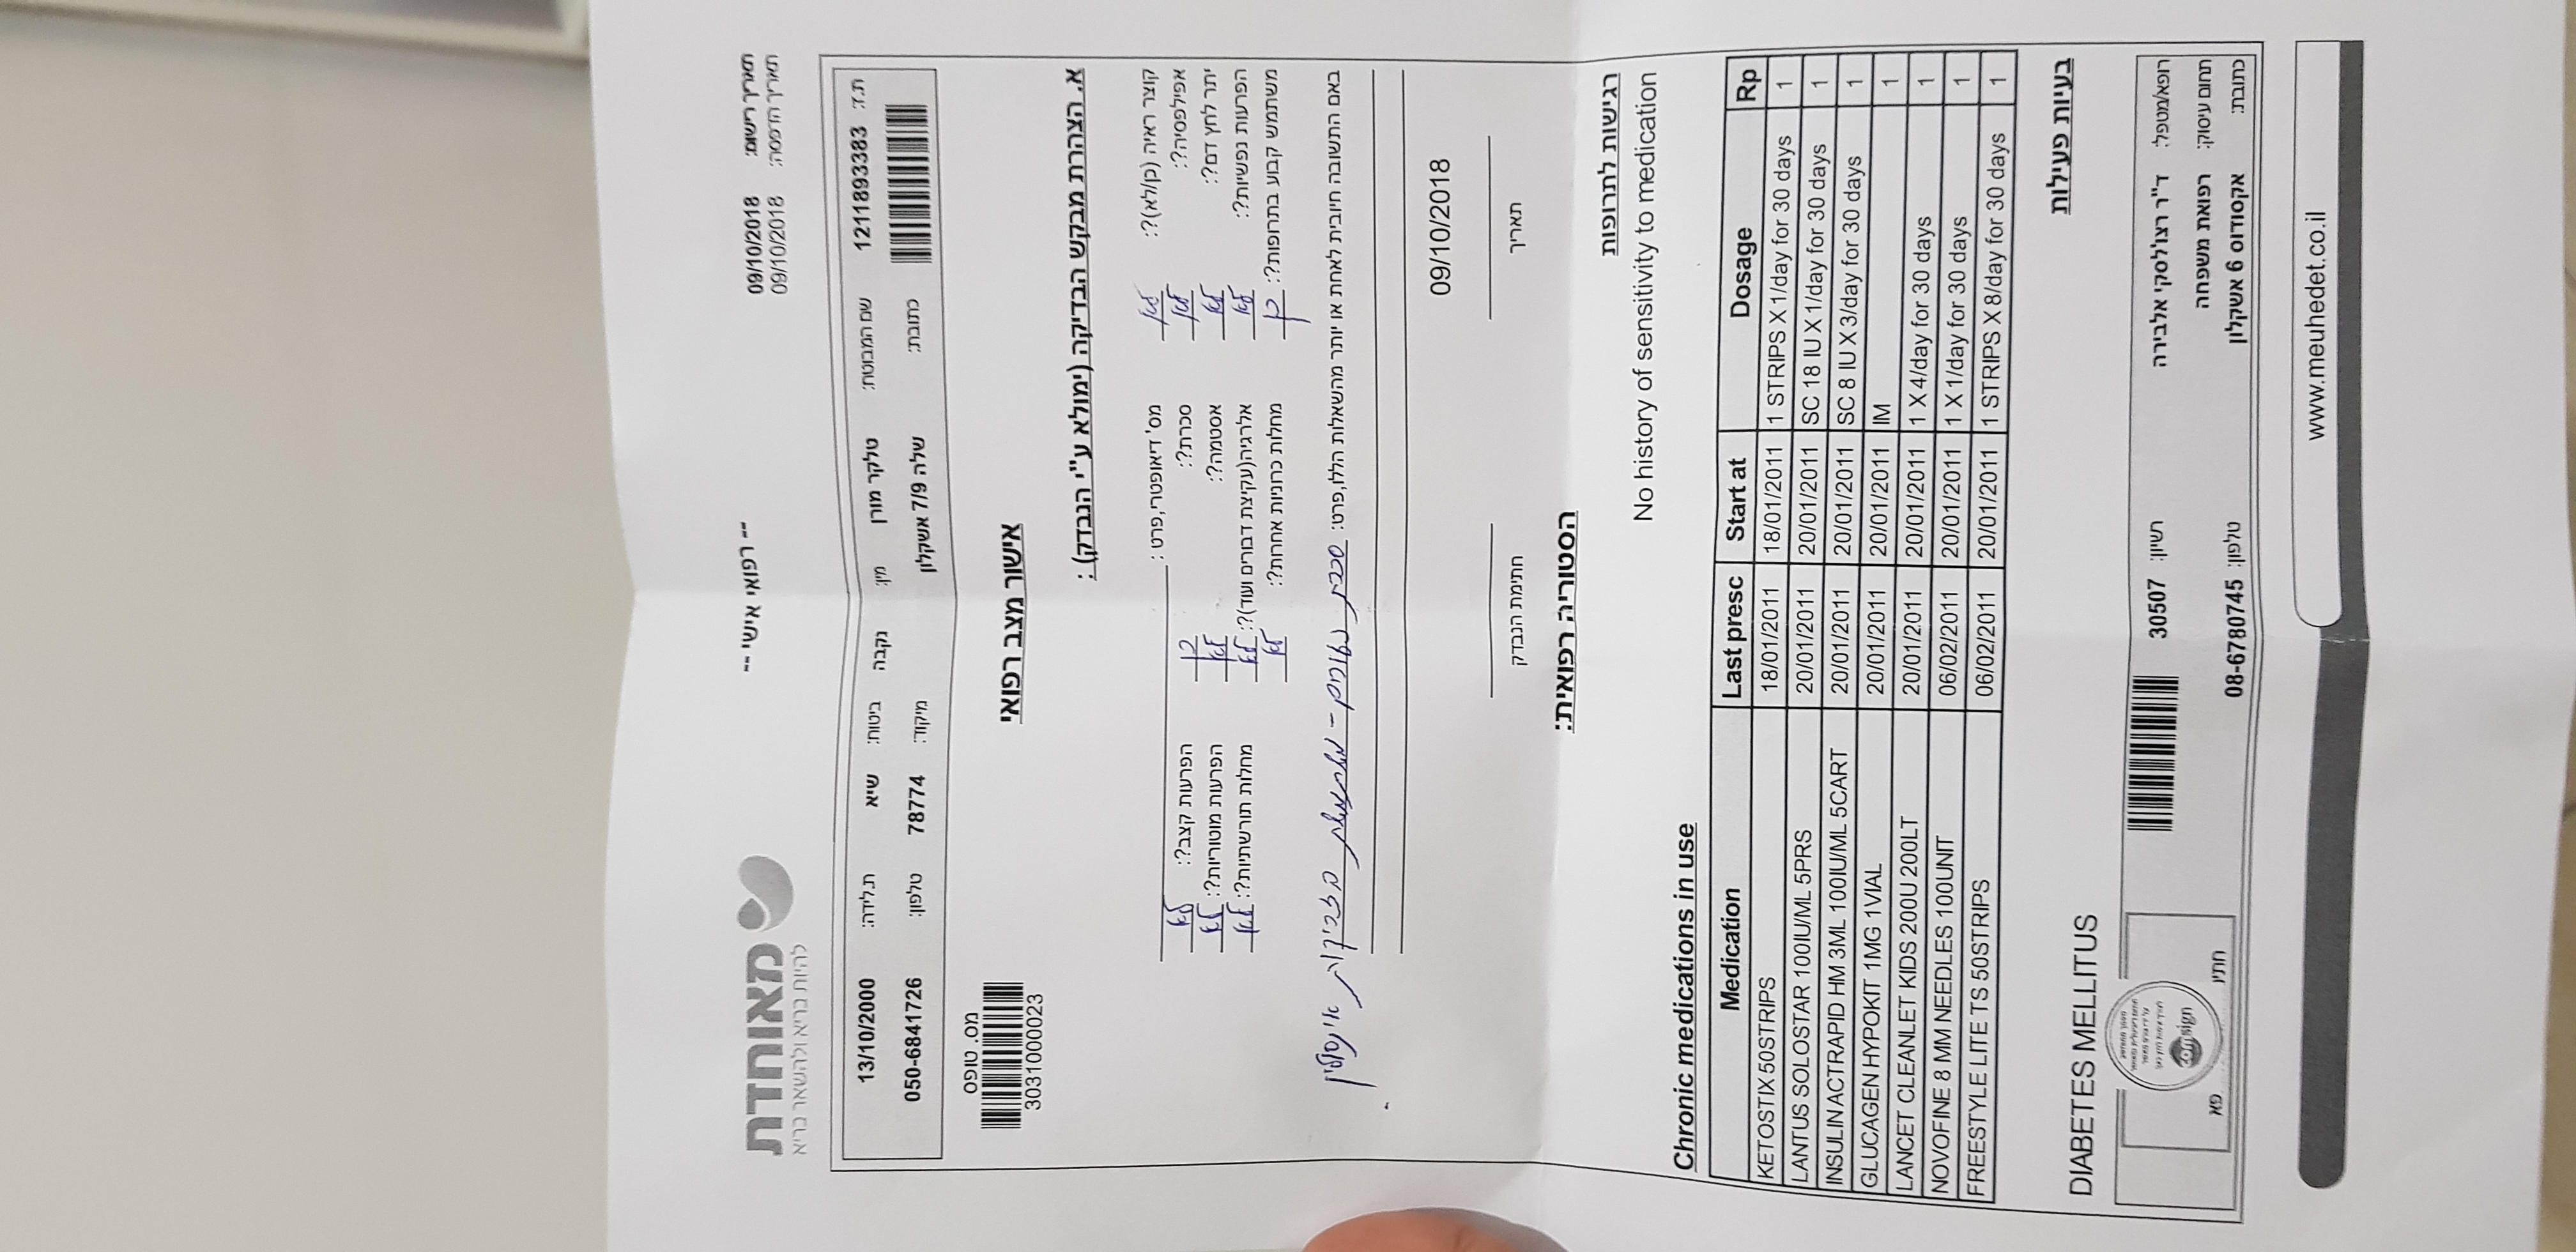 תאריך רישום: 09/10/2018
-- רפואי אישי --
מאוחדת
תאריך הדפסה: 09/10/2018
להיות בריא ולהשאר בריא
ת.ז: 1211893383 שם המבוטח: טלקר מורן מין: נקבה ביטוח: שיא ת.לידה: 13/10/2000
כתובת: שלה 7/9 אשקלון מיקוד: 78774 טלפון: 050-6841726
מס. טופס
3031000023
אישור מצב רפואי
א. הצהרת מבקש הבדיקה (ימולא ע"י הנבדק) :
קוצר ראיה (כן/לא)?: לא מס' דיאופטרי,פרט :
אפילפסיה?: לא סכרת?: כן הפרעות קצב?: לא
יתר לחץ דם?: לא אסטמה?: לא הפרעות מוטוריות?: לא
הפרעות נפשיות?: לא אלרגיה(עקיצת דבורים ועוד)?: לא מחלות תורשתיות?: לא
משתמש קבוע בתרופות?: כן מחלות כרוניות אחרות?: לא
באם התשובה חיובית לאחת או יותר מהשאלות הללו,פרט: סכרת נעורים - משתמשת בזריקות אינסולין
09/10/2018
תאריך חתימת הנבדק
הסטוריה רפואית:
רגישות לתרופות
No history of sensitivity to medication
Chronic medications in use
Medication Last presc Start at Dosage Rp
KETOSTIX 50STRIPS 18/01/2011 18/01/2011 1 STRIPS X 1/day for 30 days 1
LANTUS SOLOSTAR 100IU/ML 5PRS 20/01/2011 20/01/2011 SC 18 IU X 1/day for 30 days 1
INSULIN ACTRAPID HM 3ML 100IU/ML 5CART 20/01/2011 20/01/2011 SC 8 IU X 3/day for 30 days 1
GLUCAGEN HYPOKIT 1MG 1VIAL 20/01/2011 20/01/2011 IM 1
LANCET CLEANLET KIDS 200U 200LT 20/01/2011 20/01/2011 1 X 4/day for 30 days 1
NOVOFINE 8 MM NEEDLES 100UNIT 06/02/2011 20/01/2011 1 X 1/day for 30 days 1
FREESTYLE LITE TS 50STRIPS 06/02/2011 20/01/2011 1 STRIPS X 8/day for 30 days 1
בעיות פעילות
DIABETES MELLITUS
רופא/מטפל: ד"ר רצו'לסקי אלבירה רשיון: 30507
תחום עיסוק: רפואת משפחה
כתובת: אקסודוס 6 אשקלון טלפון: 08-6780745
comsign
חתי פא
www.meuhedet.co.il